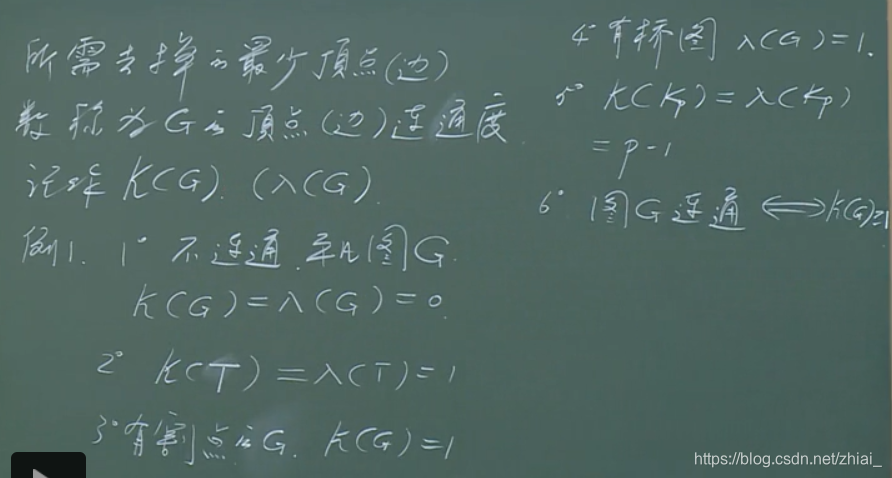 所需去掉的最少顶点(边)
数称为G的顶点(边)连通度.
记作 K(G). (λ(G).
例1. 1° 不连通.平凡图G.
K(G)=λ(G)=0.
2° K(T)=λ(T)=1
3°有割点的G. K(G)=1
4°有桥图 λ(G)=1.
5° K(Kp)=λ(Kp)
=p-1
6° 图G连通⟺K(G)≥1
https://blog.csdn.net/zhiai_